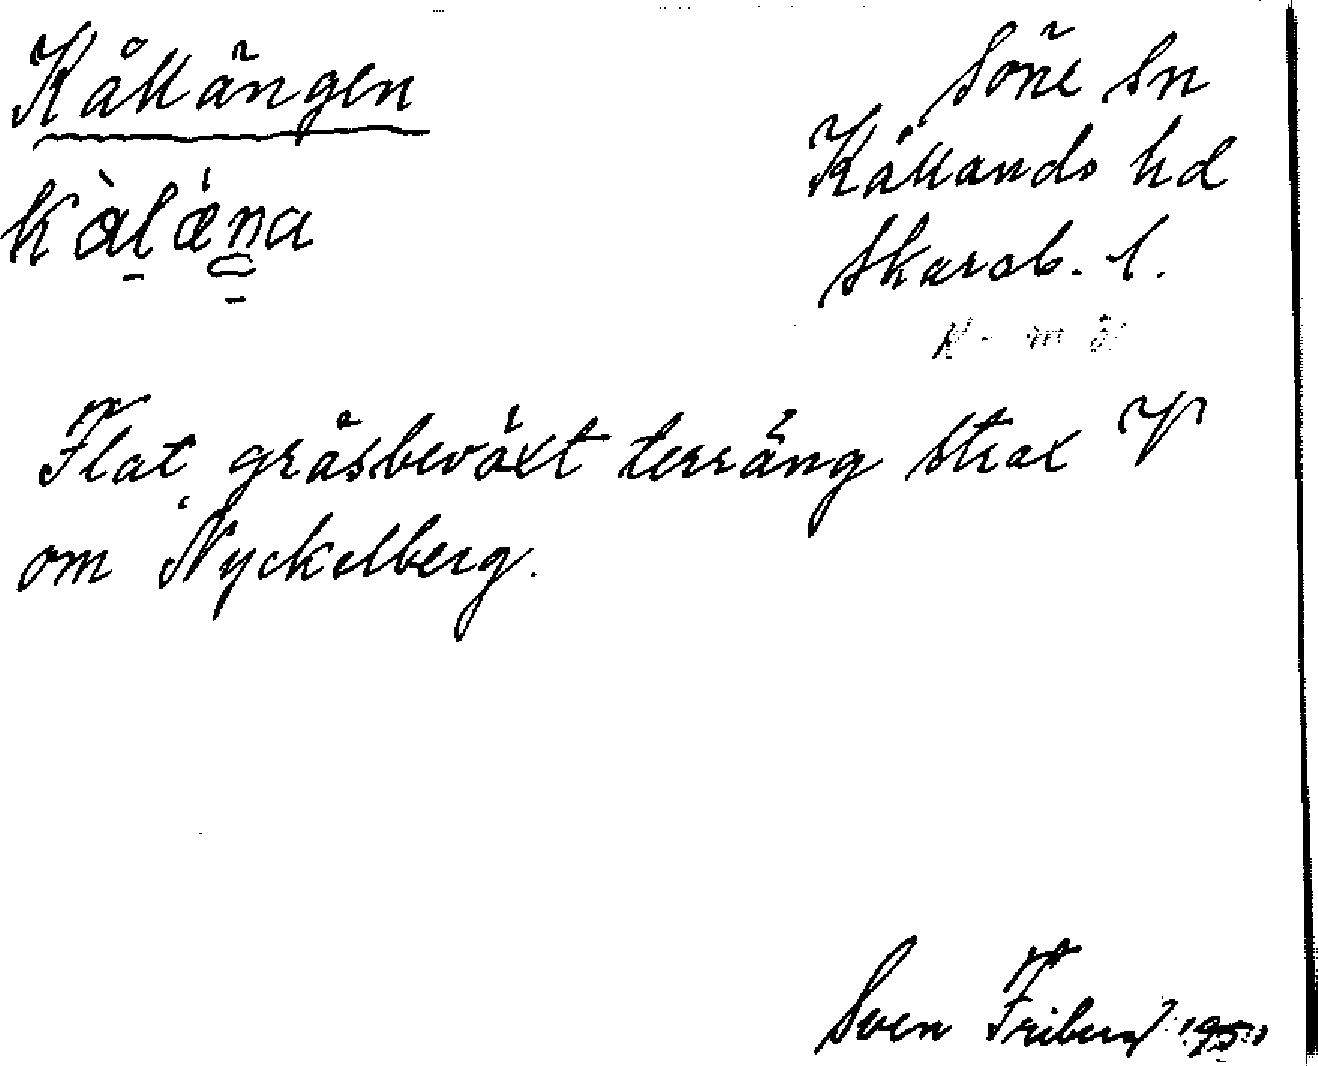 Kållängen
Söne Sn
Kållands hd
Skarab. l.
Flat, gräsbeväxt terräng strax V
om Nyckelberg.
Sven Friberg